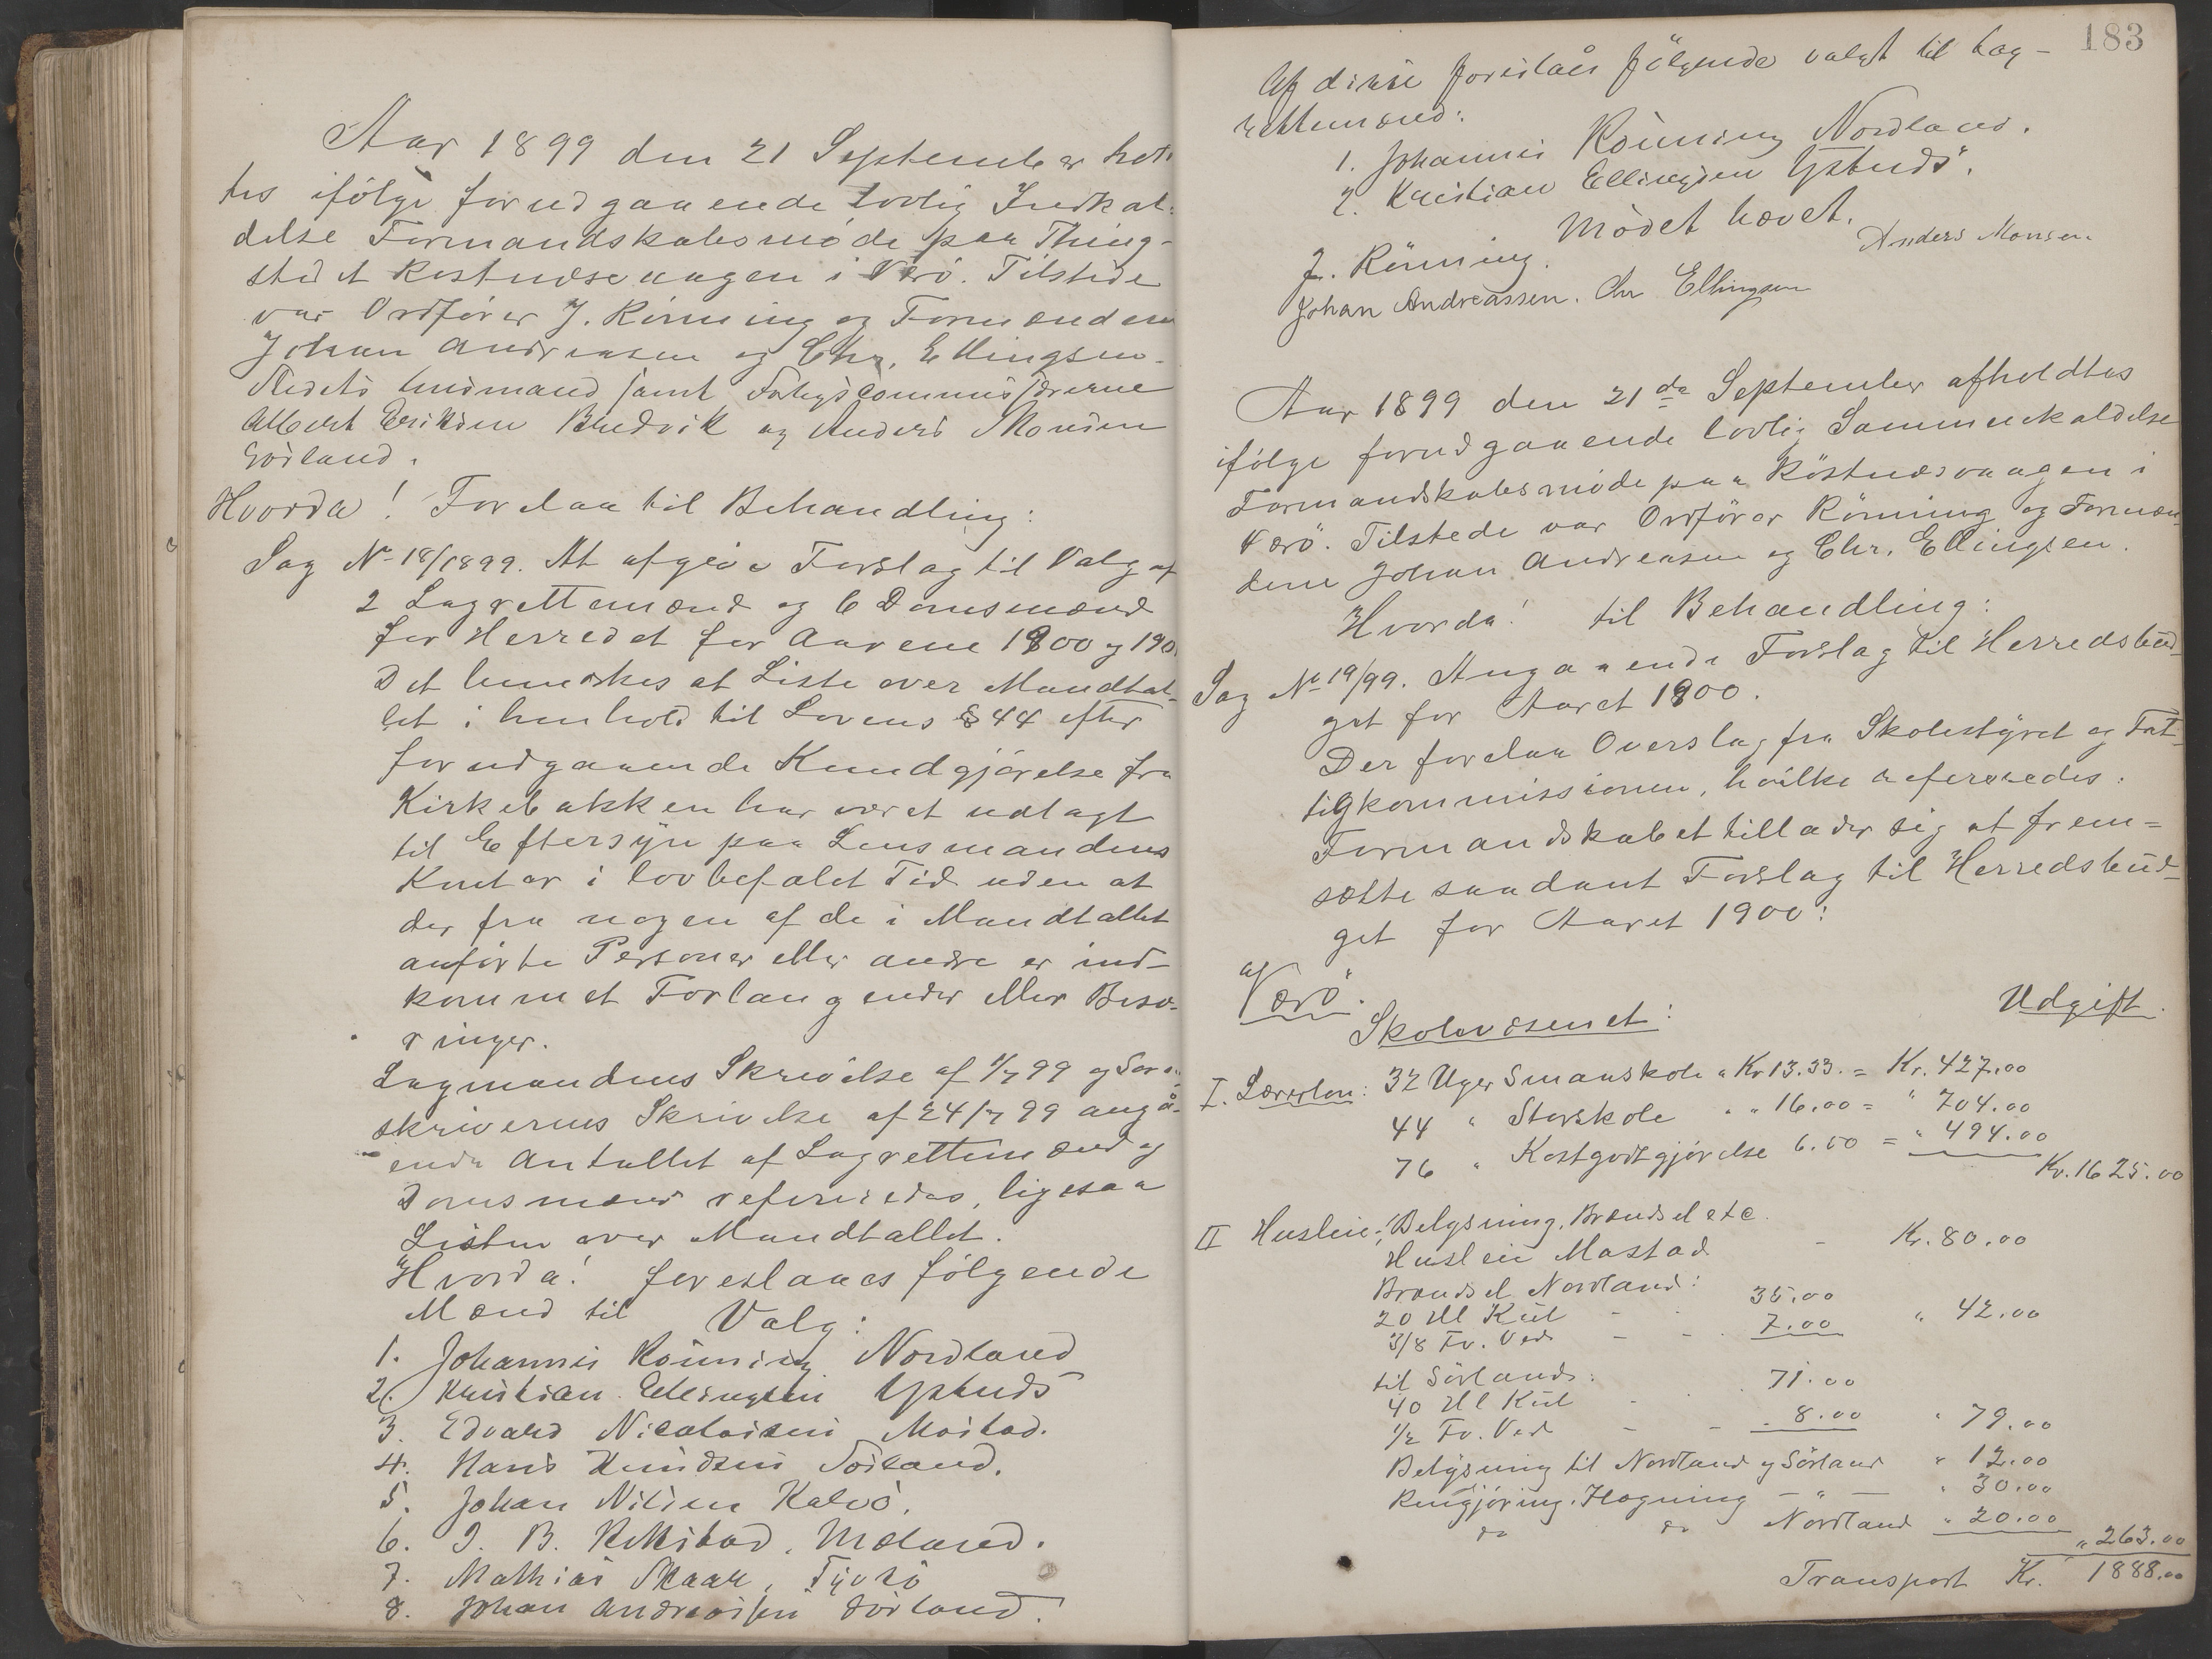 Aar 1899 den 21 September hol-
tes ifölge forudgaaende lovlig Indkal-
delse Formandskabsmöde paa Thing-
stedet Röstnæsvaagen i Værö. Tilstede
var Ordförer J. Rönning og Formændene
Johan Andreasen og Chr. Ellingsen.
Stedets Lensmand samt Fattigcommissærerne
Albert Eriksen Bredvik og Anders Monsen
Sörland.
Hvorda! Forelaa til Behandling:
Sag No 18/1899. At afgive Forslag til Valg af
2 Lagrettemænd og 6 Domsmænd
for Herredet for Aarene 1900 og 190
Det bemærkes at Liste over Mandtal-
let i henhold til Lovens § 44 efter
forudgaaende Kundgjörelse fra
Kirkebakken har været udlagt
til Eftersyn paa Lensmandens
Kontor i lovbefalet Tid uden at
der fra nogen af de i Mandtallet
anförte Personer eller andre er ind-
kommet Forlangender eller Besvæ-
ringer.
Lagmandens Skrivelse af 1/7 99 og Soren-
skriverens Skrivelse af 24/7 99 angå-
ende Antallet af Lagrettemænd og
Domsmænd refereredes, ligesaa
Listen over Mandtallet.
Hvorda! foreslaaes fölgende
Mænd til Valg:
1. Johannes Rönning Nordland
2. Kristian Ellingsen Ystnes
3. Edvard Nicolaisen Mostad.
4. Hans Knudsen Sörland.
5. Johan Nilsen Kalvö.
6. J. B. Rekstad, Mæland.
7. Mathias Skaar, Tyvsö
8. Johan Andreassen Sörland.
183
Af disse foreslåes fölgende valgt til Lag-
rettemænd:
1. Johannes Rönning Nordland.
2. Kristian Ellingsen Ystnes.
Mödet hævet.
J. Rönning. Anders Monsen
Johan Andreassen. Chr Ellingsen
Aar 1899 den 21de September afholdtes
ifölge forudgaaende lovlig Sammenkaldelse
Formandskabsmöde paa Röstnæsvaagen i
Værö. Tilstede var Ordförer Rönning og Formæn-
dene Johan Andreasen og Chr. Ellingsen.
Hvorda! til Behandling:
Sag No 19/99. Angaaende Forslag til Herredsbud-
get for Aaret 1900.
Der forelaa Overslag fra Skolestyret og Fat-
tigkommissionen, hvilke refereredes.
Formandskabet tillader sig at frem=
sætte saadant Forslag til Herredsbud-
get for Aaret 1900:
af
Værö.
Skolevæsenet: Udgift.
I. Lærerlön: 32 Uger Smaaskole a Kr 13.33. = Kr. 427.00
44 " Storskole " " 16.00 = " 704.00
76 " Kostgodtgjörelse 6.50 = " 494.00
Kr. 1625.00
II Husleie, Belysning, Brændsel etc.
Husleie Mostad - Kr. 80.00
Brændsel Nordland:
20 Hl Kul - - 35.00
3/8 Fv. Ved - - 7.00 " 42.00
til Sörland:
40 Hl Kul - - 71.00
1/2 Fv. Ved - - 8.00 " 79.00
Belysning til Nordland og Sörland " 12.00
Rengjöring, Hogning - " - " 30.00
do do Nordland " 20.00
" 263.00
Transport Kr. 1888.00